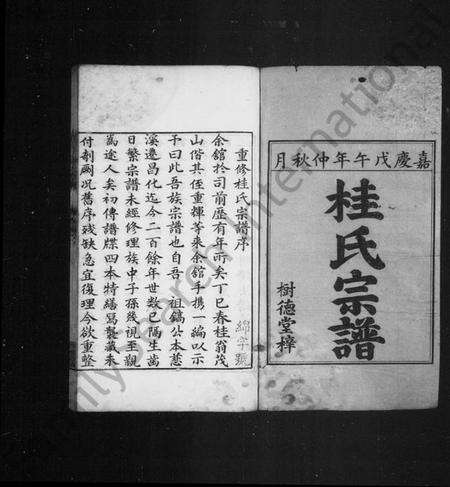 嘉慶戊午年仲秋月
桂氏宗譜
樹德堂梓
重修桂氏宗譜序
余舘於司前歷有年所矣丁巳春桂翁茂
山偕其侄重揮等來余舘手携一編以示
予曰此吾族宗譜也自吾 祖鎬公本慈
溪遷昌化迄今二百餘年世數已隔生齒
日繁宗譜未經修理族中子孫幾視至親
為途人矣初傳譜牒四本特繕寫襲藏未
付剞劂况舊序殘缺急宜復理今欲重整
綿字號
Family Search International